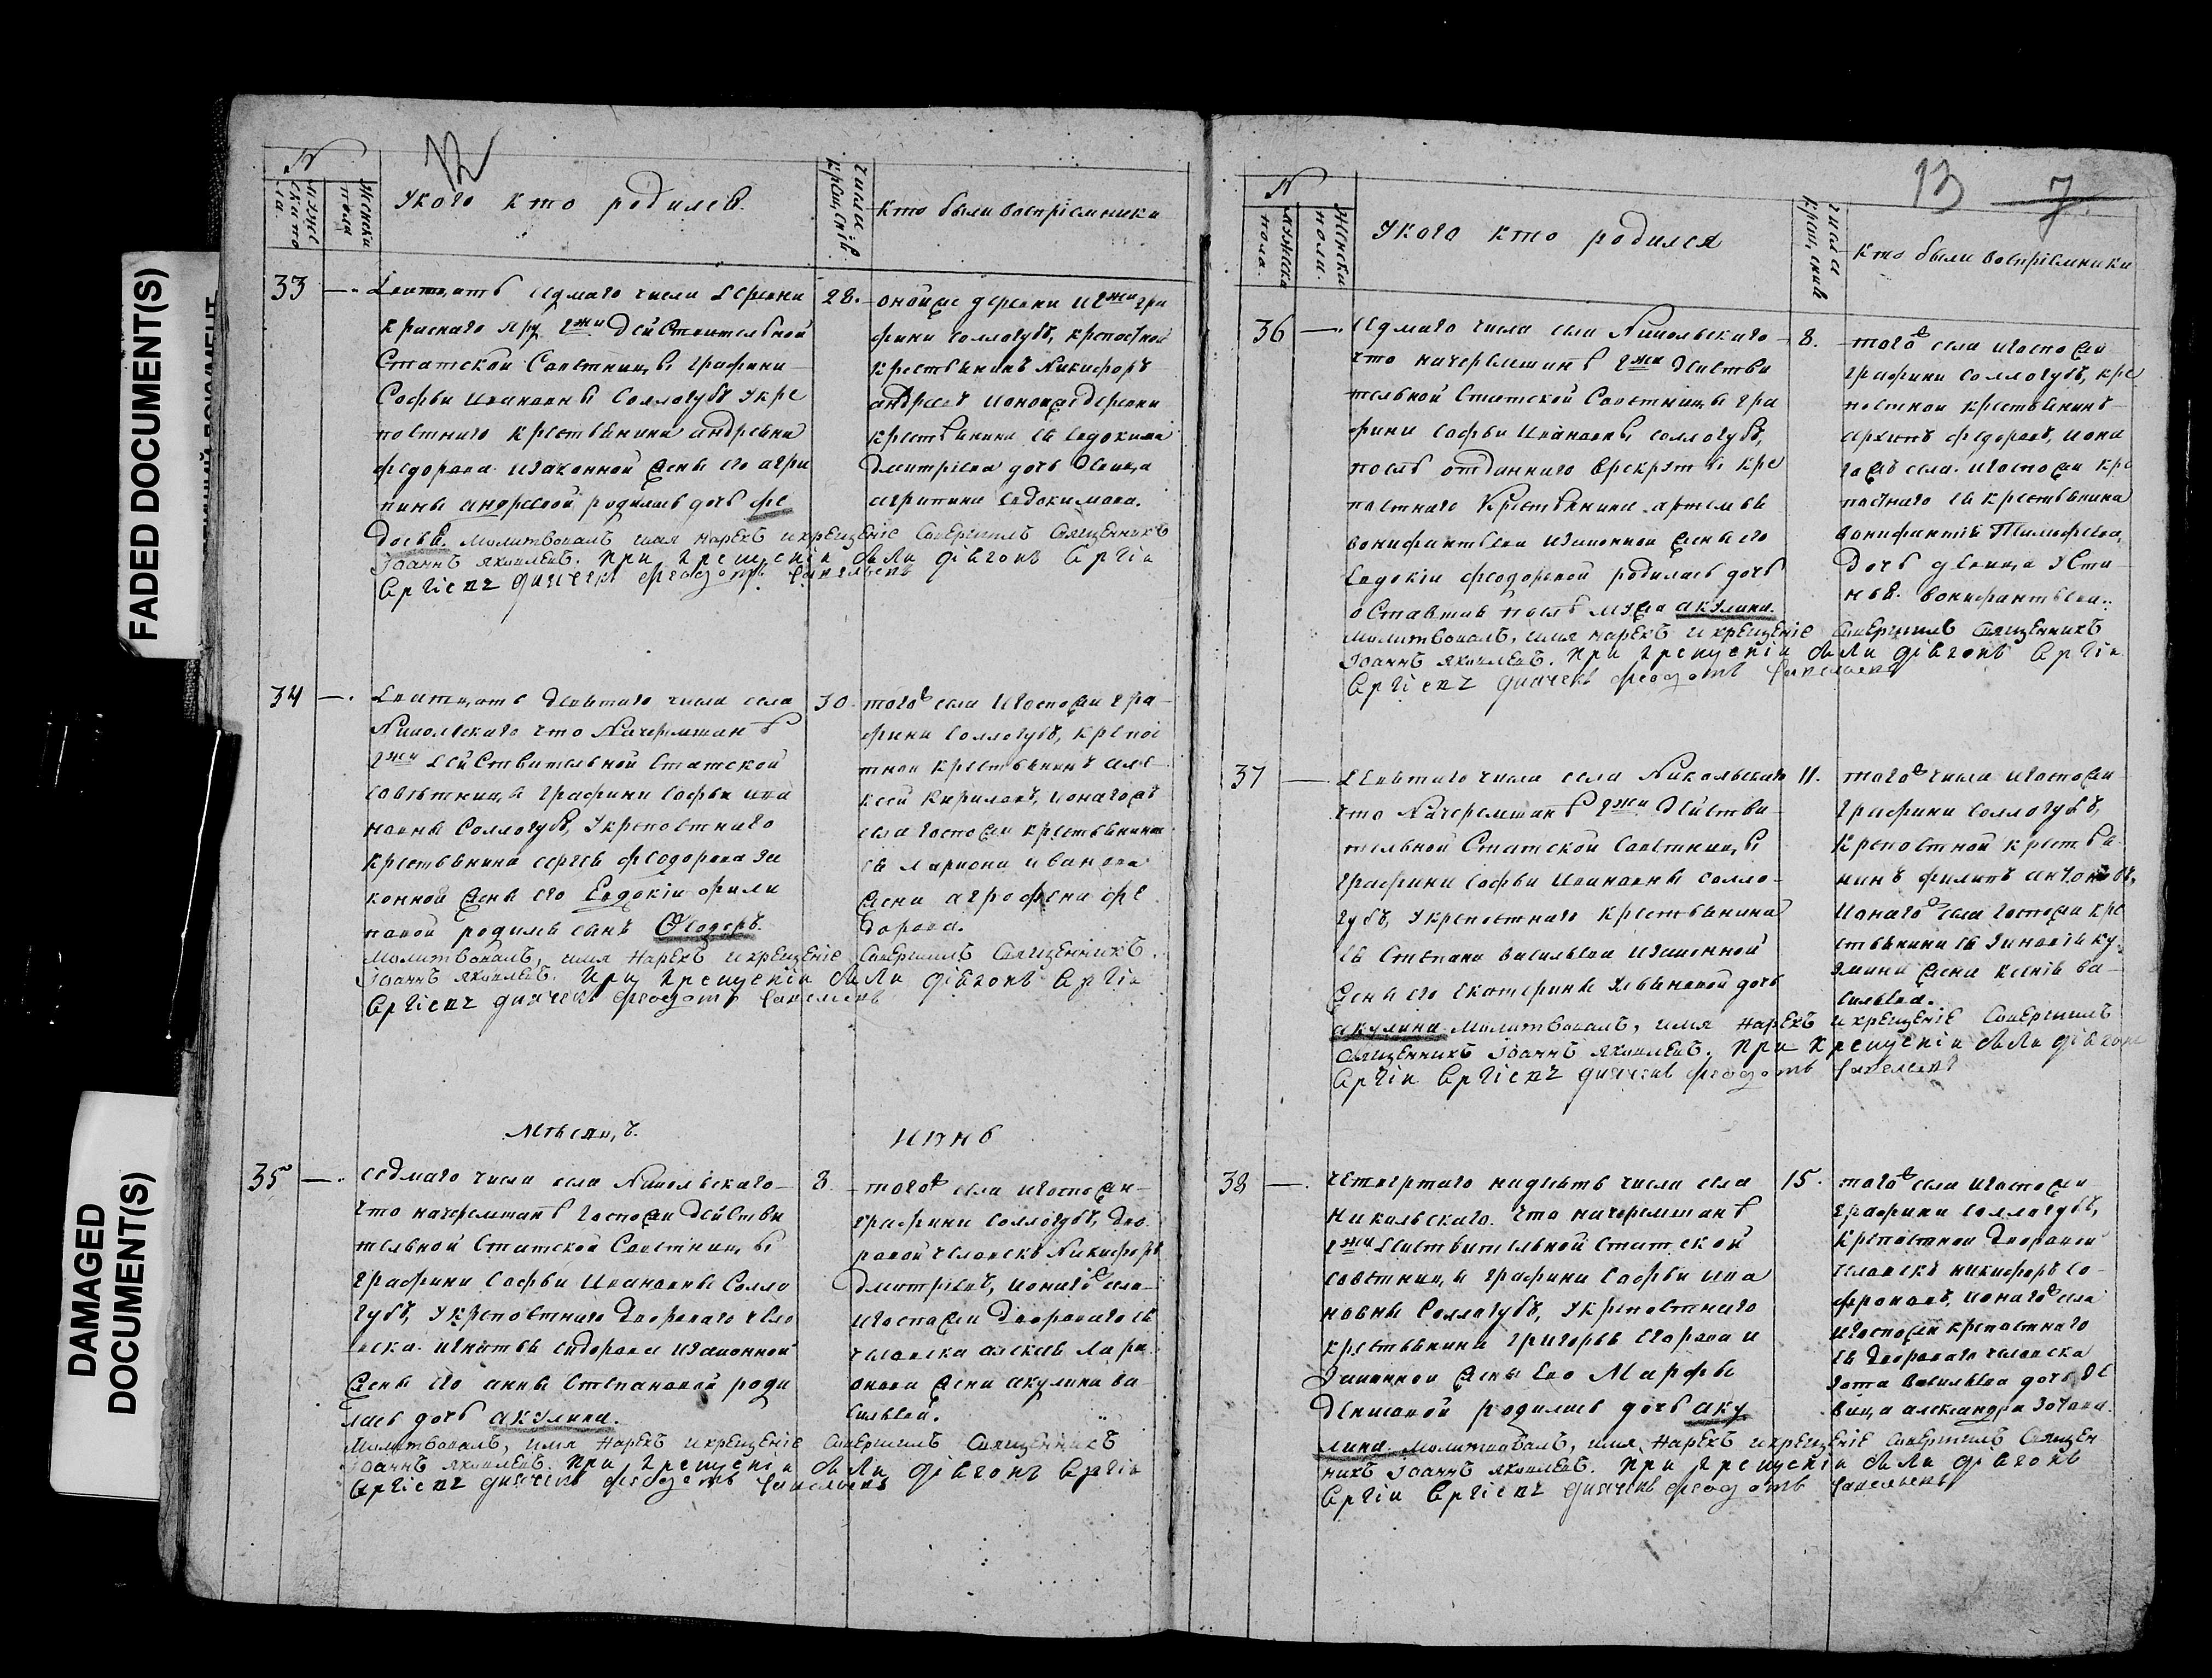 FADED DOCUMENT(S)
DAMAGED
DOCUMENT(S)
12
N
Женска
пола
У кого кто родился
числа
крещенїѧ
кто были воспрїемники
33
28.
Двадцать седмаго числа деревни
Краснаго Яру гжи Действительной
Статской Советницы Графини
Софьи Ивановны Соллогубъ У кре
постнаго крестьянина андреяна
федорова изаконной жены его агри
пины андреевой родилась дочь фе
досья. молитвовалъ имя нарекъ и крещенїе совершилъ священникъ
Іоаннъ яковлевъ. При крещенїи были дїаконъ
дьячекъ феодотъ
оной же деревни и гжи гра
фини Соллогубъ, крепостной
крестьянинъ Никифоръ
андреевъ и оной же деревни
крестьянина евдокима
дмитрїева дочь девица
агрипина евдокимова.
34
30.
Двадцать девятаго числа села
Никольскаго что Начеремшанѣ
гжи Действительной Статской
советницы графини Софьи ива
новны Соллогубъ, У крепостнаго
крестьянина сергея феодорова за
конной жены его Евдокїи фили
повой родился сынъ Ѳеодоръ.
молитвовалъ, имя нарекъ и крещенїе совершилъ священникъ
Іоаннъ яковлевъ. При крещенїи были дїаконъ
дьячекъ феодотъ
того же села и госпожи гра
фини Соллогубъ, крепос
тной крестьянинъ алек
сей Кириловъ, и онаго жъ
села госпожи крестьянина
Лариона иванова
жена аграфена фе
дорова.
Мѣсяцъ
Июнь
35
8.
седмаго числа села Никольскаго
что начеремшанѣ Госпожи Действи
тельной Статской Советницы
графини Софьи Ивановны Солло
губъ, У крепостнаго дворового чело
века игнатья сидорова изаконной
жены его анны Степановой роди
лась дочь акулина.
молитвовалъ, имя нарекъ и крещенїе совершилъ священникъ
Іоаннъ яковлевъ. При крещенїи были дїаконъ
дьячекъ феодотъ
того же села и госпожи
графини Соллогубъ, дво
ровой человекъ Никифоръ
дмитрїевъ, и онаго же села
и госпожи дворового
человека алексея Лари
онова жена акулина ва
сильева.
13 7
N
мужска
пола.
Женска
пола.
У кого кто родился
числа
крещенїѧ
кто были воспрїемники
36
8.
седмаго числа села Никольскаго
что начеремшанѣ гжи Действи
тельной Статской Советницы гра
фини Софьи Ивановны Соллогубъ,
послѣ отданнаго в рекруты кре
постнаго крестьянина артемья
вонифантьева изаконной жены его
Евдокїи феодоровой родилась дочь
оставшая послѣ мужа акулина.
молитвовалъ, имя нарекъ и крещенїе совершилъ священникъ
Іоаннъ яковлевъ. При крещенїи были дїаконъ
дьячекъ феодотъ
того же села и госпожи
графини Соллогубъ, кре
постной крестьянинъ
архипъ федоровъ, и она
го жъ села и госпожи кре
постнаго крестьянина
вонифантїя Тимофеева
дочь девица Усти
нья вонифантьева.
37
11.
Девятаго числа села Никольскаго
что Начеремшанѣ гжи Действи
тельной Статской Советницы
графини Софьи Ивановны Солло
губъ, У крепостнаго крестьянина
Степана васильева изаконной
жены его Екатерины Ульяновой дочь
акулина молитвовалъ, имя нарекъ и крещенїе совершилъ
священникъ Іоаннъ яковлевъ. При крещенїи были дїаконъ
дьячекъ феодотъ
того же числа и госпожи
графини Соллогубъ,
крепостной крестья
нинъ филипъ антоновъ,
и онаго же села госпожи кре
стьянина Зиновїя ку
змина жена ксенїя ва
сильева.
38
15.
четвертаго надцать числа села
Никольскаго что начеремшанѣ
гжи Действительной статской
советницы графини Софьи ива
новны Соллогубъ, У крепостнаго
крестьянина григорья егорова и
законной жены его Марфы
денисовой родилась дочь аку
лина. молитвовалъ, имя нарекъ и крещенїе совершилъ священ
никъ Іоаннъ яковлевъ. При крещенїи были дїаконъ
дьячекъ феодотъ
того же села и госпожи
графини Соллогубъ,
крепостной дворовой
человекъ никифоръ со
фроновъ, и онаго же села
и госпожи крепостнаго
дворового человека
Зота васильева дочь де
вица александра Зотова.